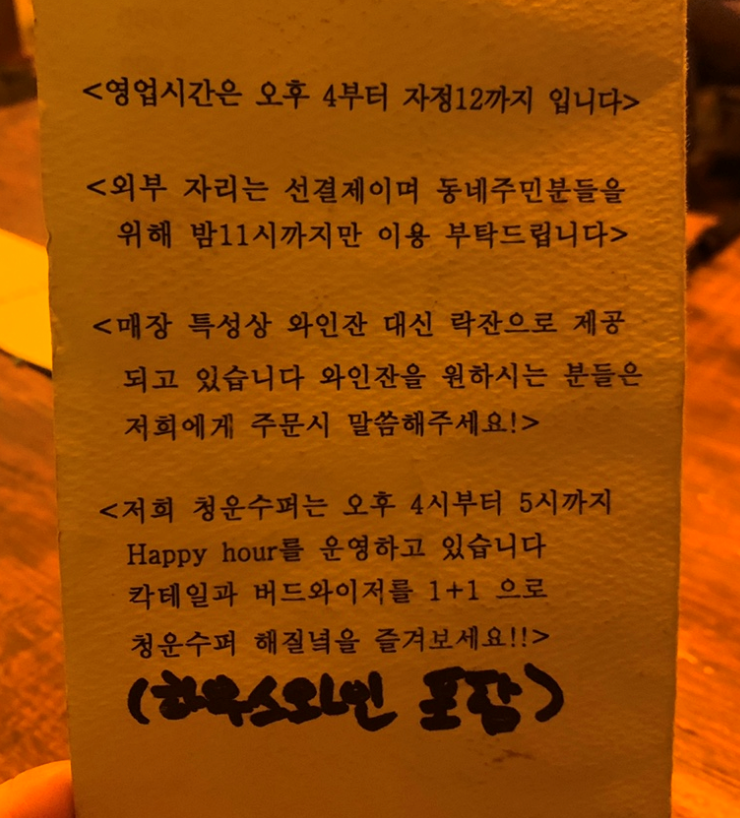 <영업시간은 오후 4부터 자정12까지 입니다>
<외부 자리는 선결제이며 동네주민분들을
위해 밤11시까지만 이용 부탁드립니다>
<매장 특성상 와인잔 대신 락잔으로 제공
되고 있습니다 와인잔을 원하시는 분들은
저희에게 주문시 말씀해주세요!>
<저희 청운수퍼는 오후 4시부터 5시까지
Happy hour를 운영하고 있습니다
칵테일과 버드와이저를 1+1 으로
청운수퍼 해질녘을 즐겨보세요!!>
(하우스와인 포함)